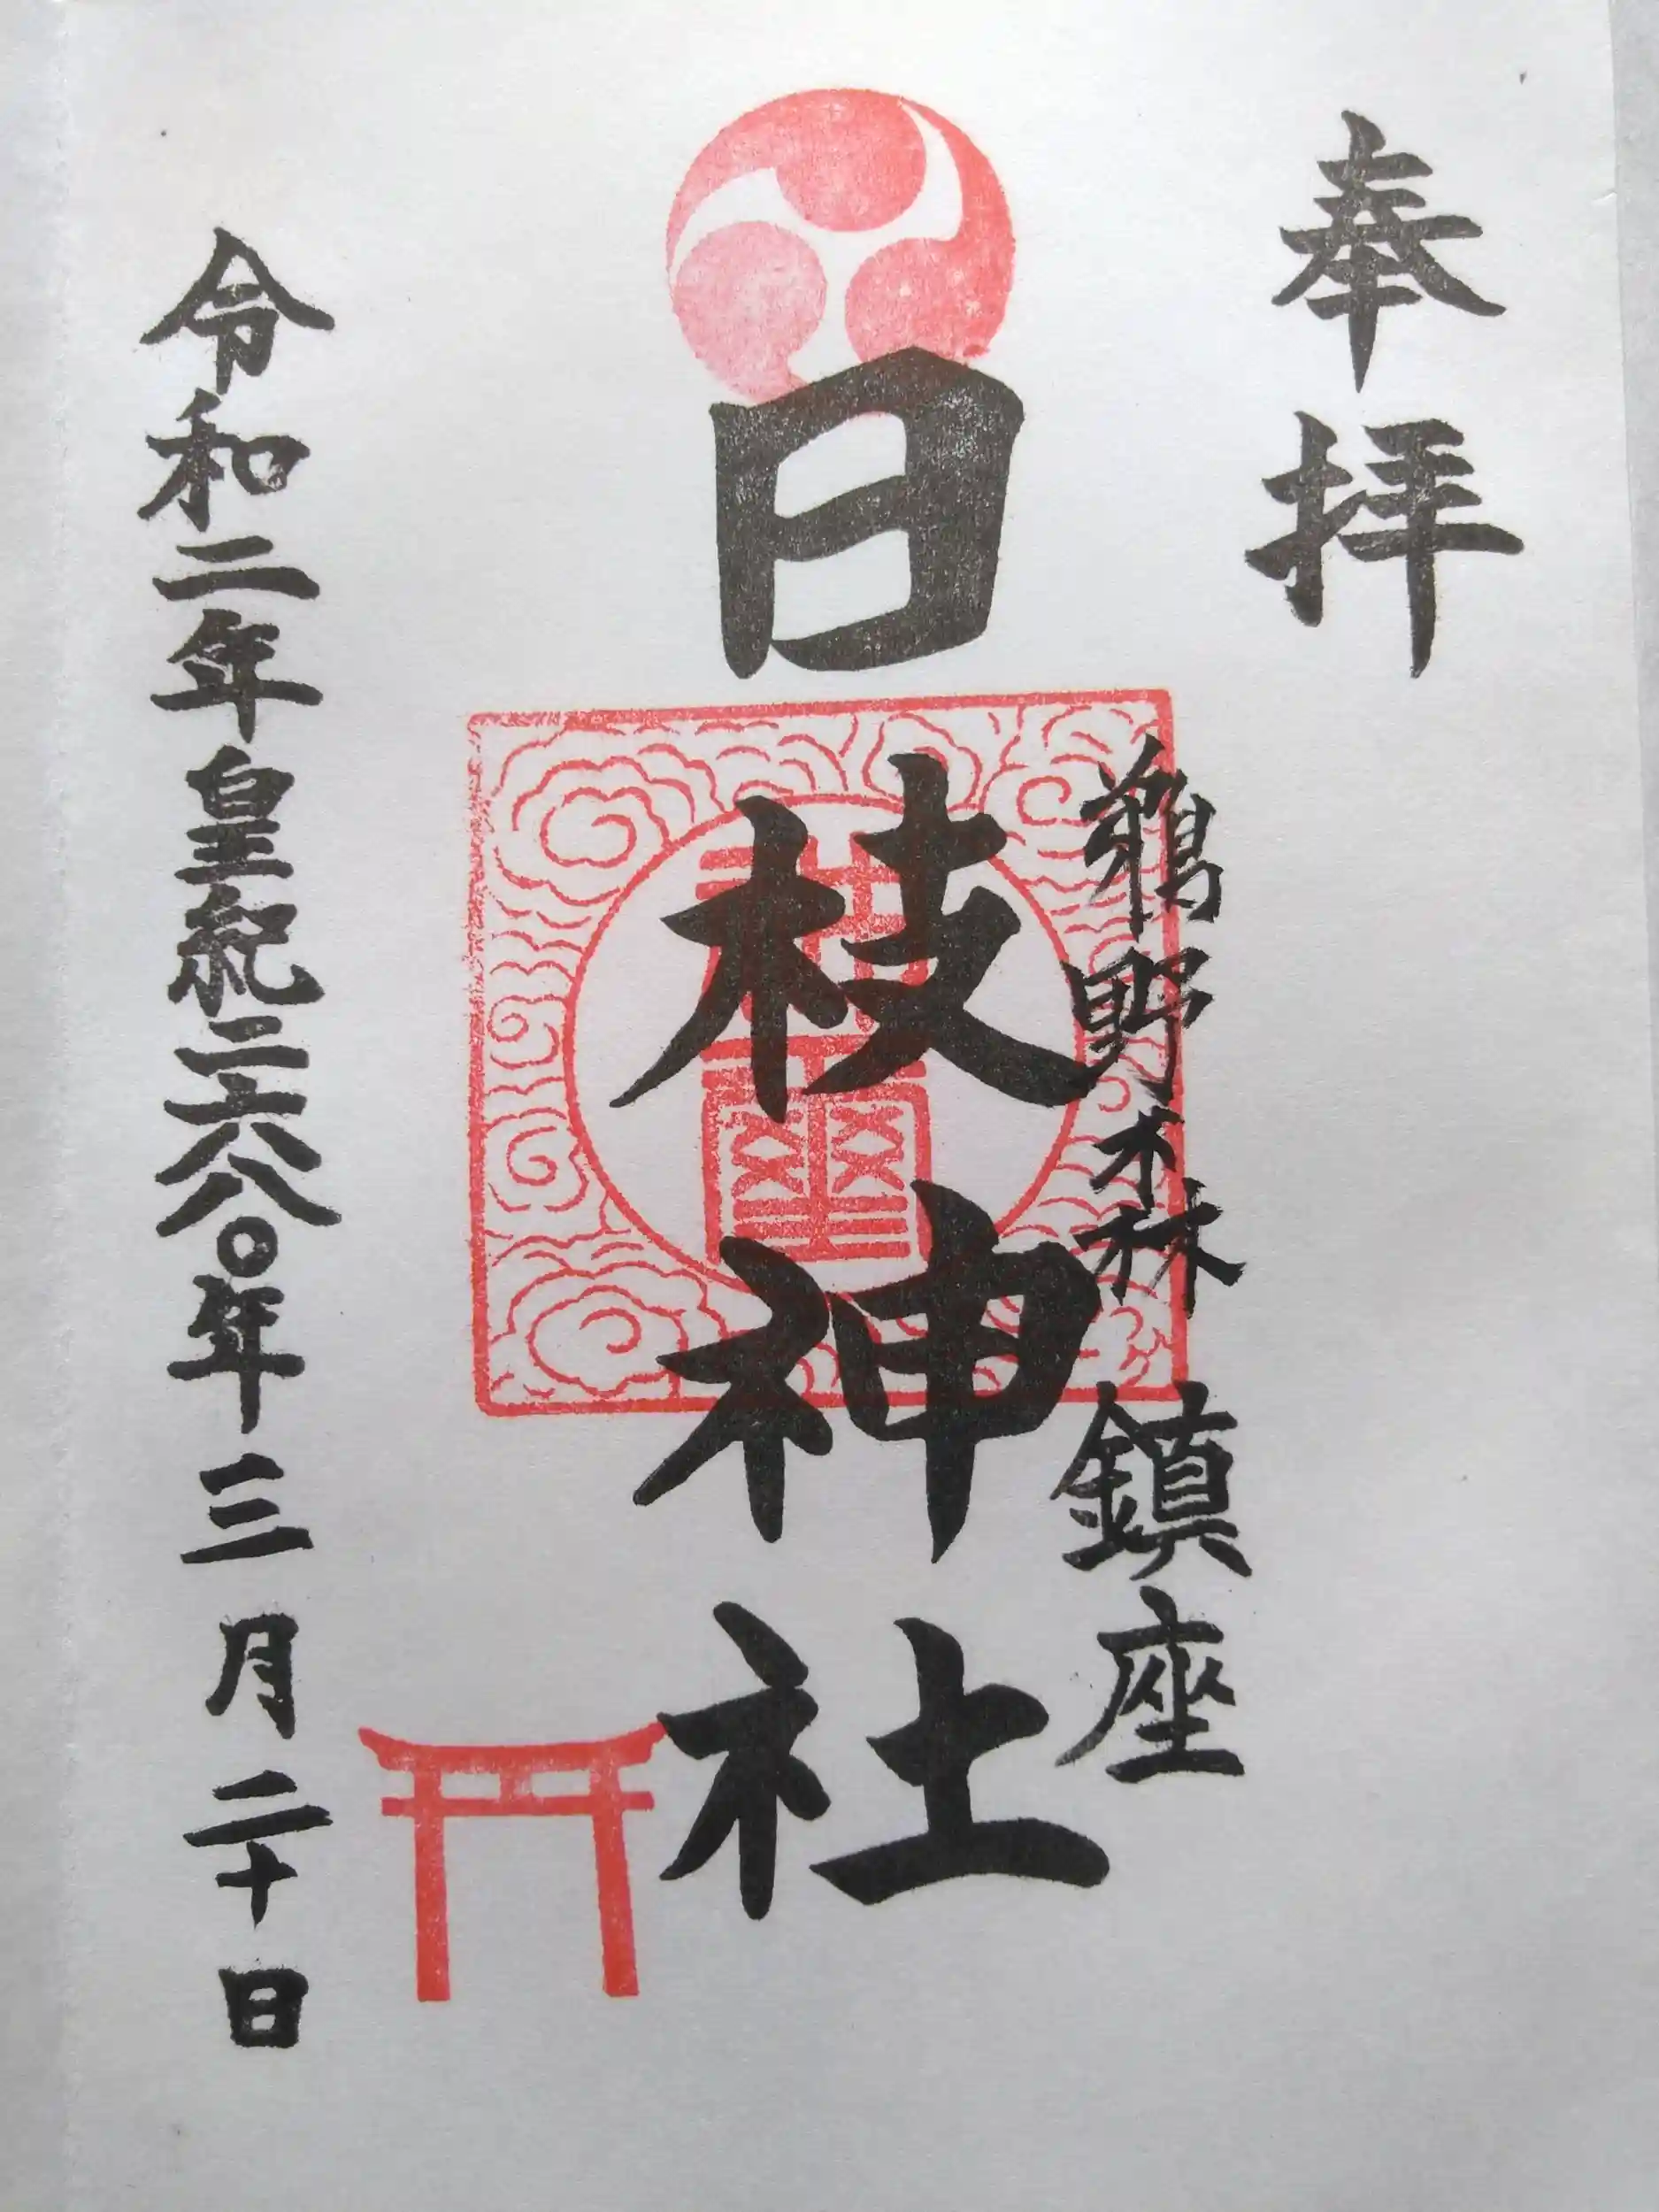 奉拝
鵜野森鎮座
日枝神社
令和二年皇紀二六八〇年三月二十日